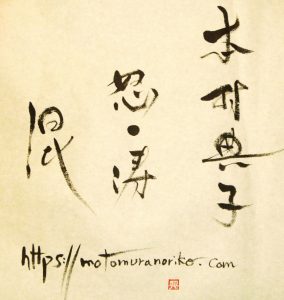 本村典子
怒・涛
https://motomuranoriko.com